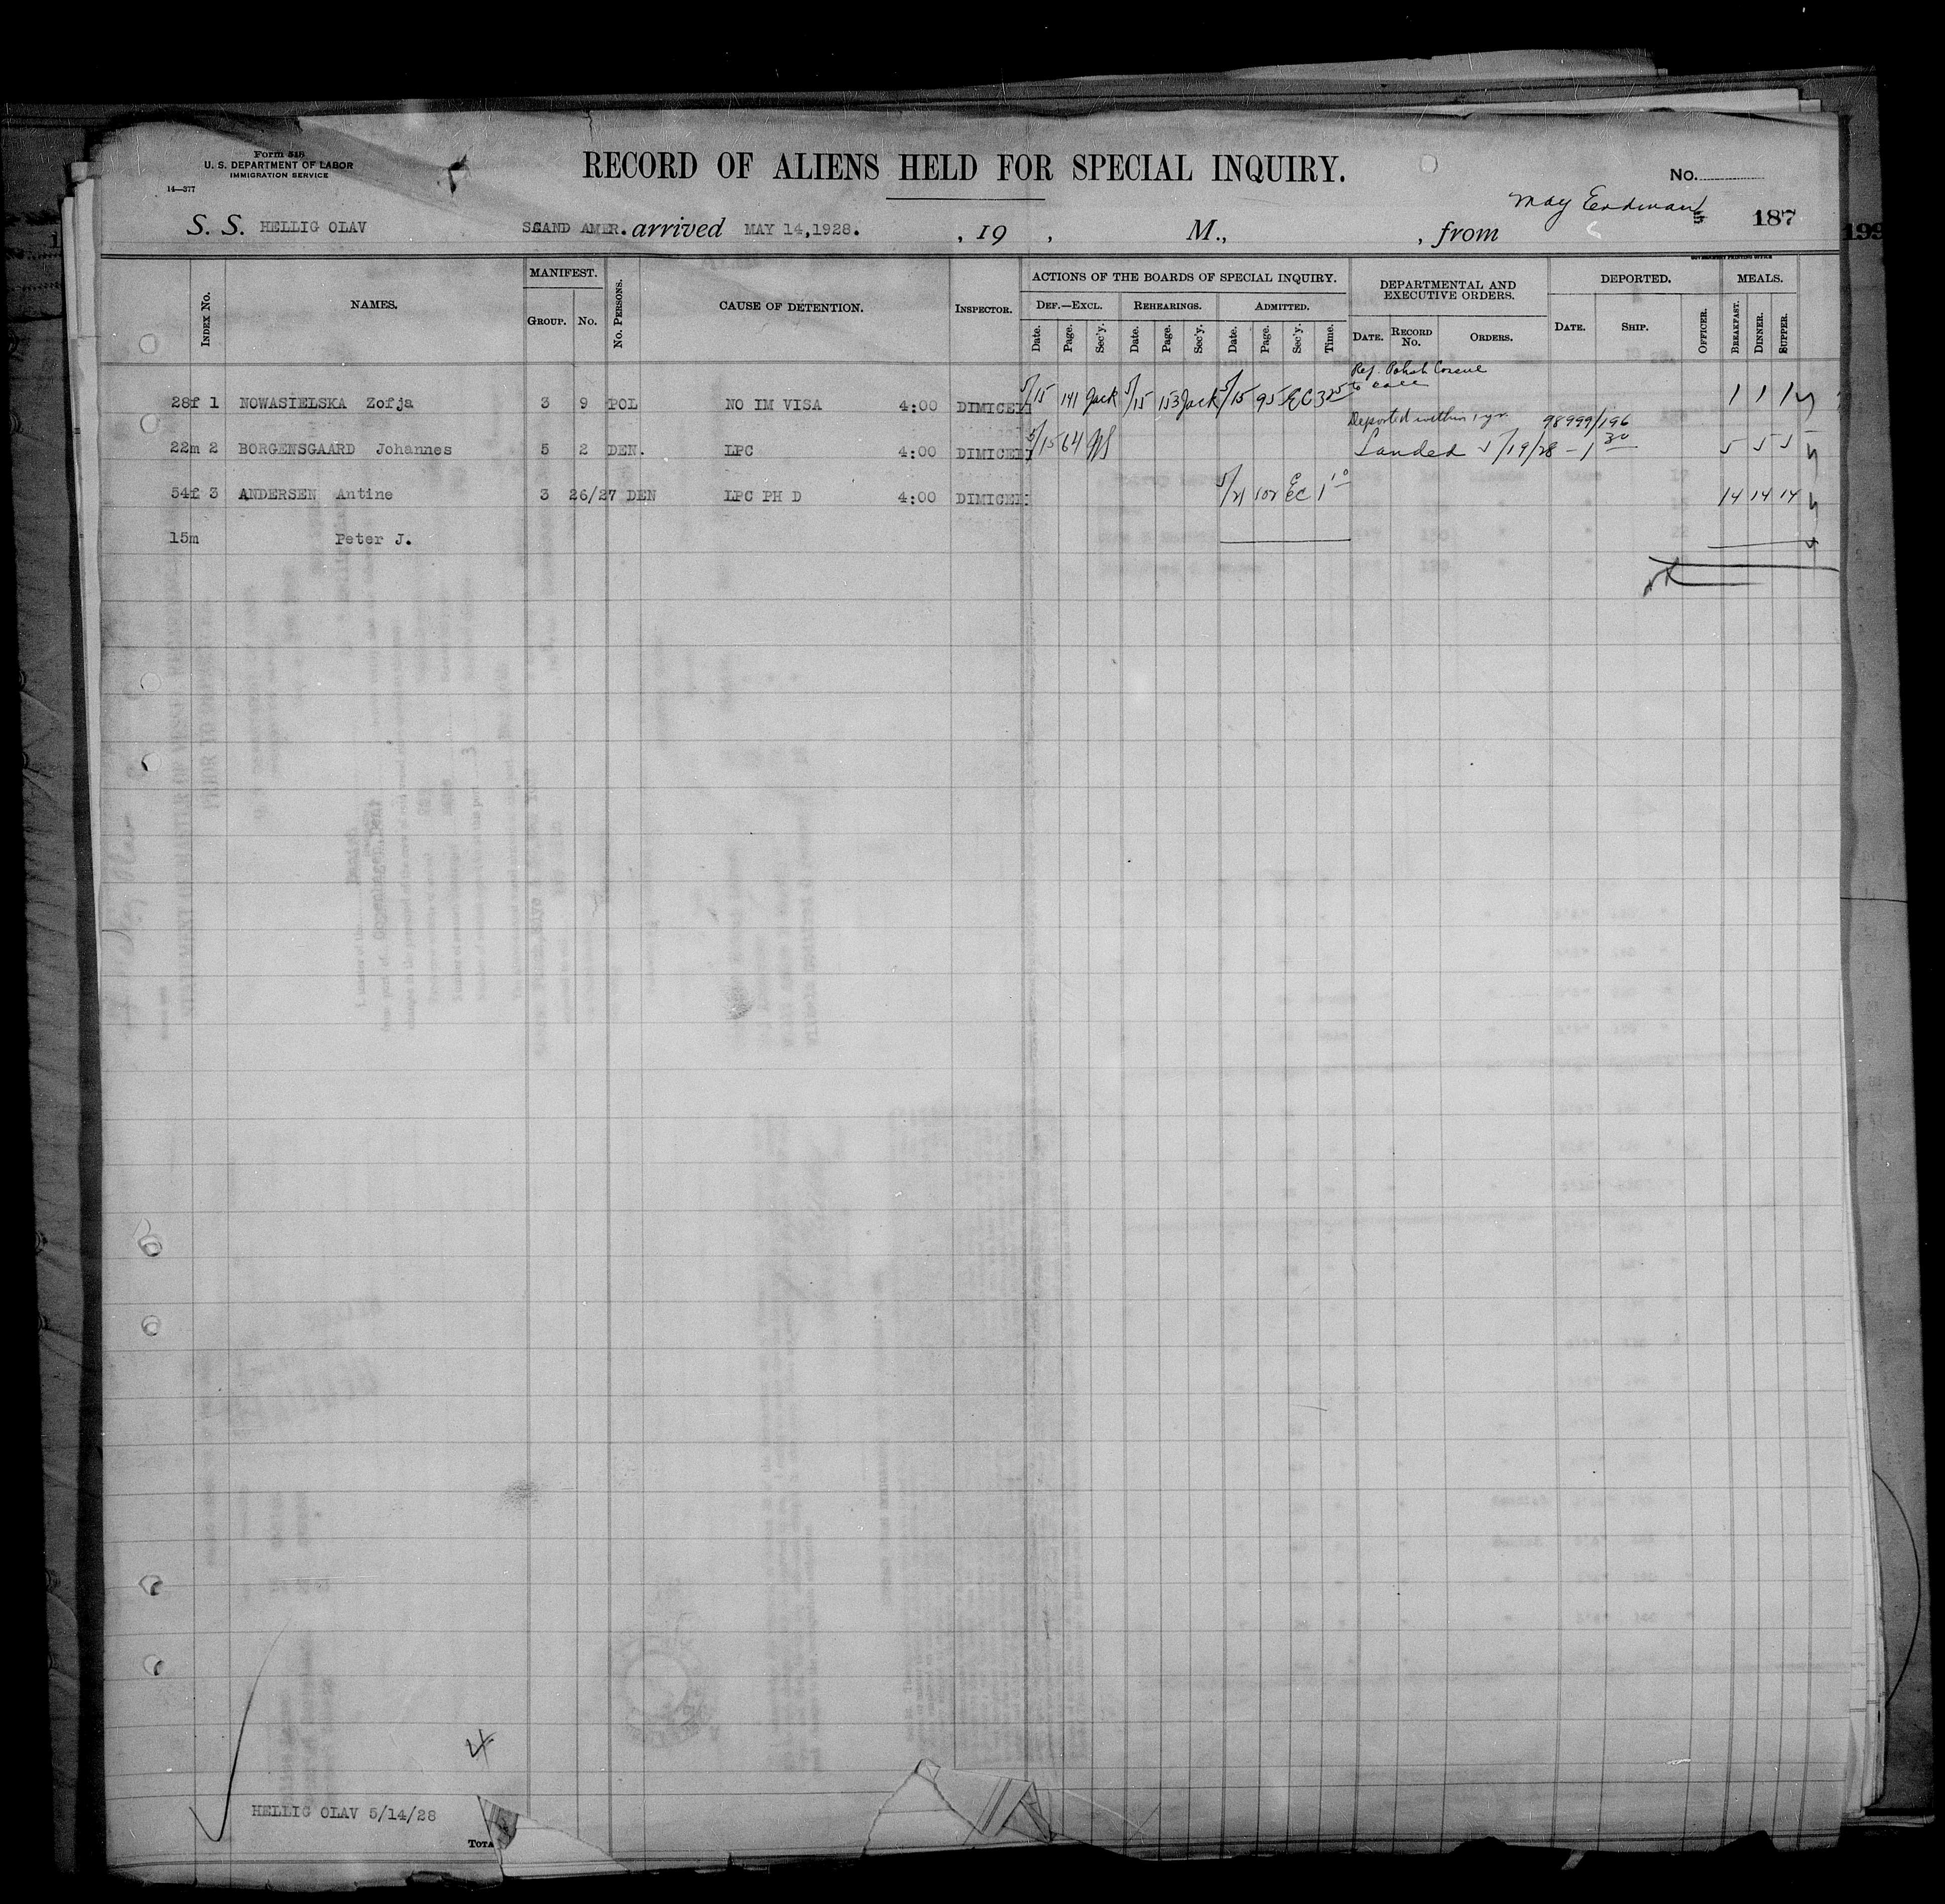 Form 518
U. S. DEPARTMENT OF LABOR
IMMIGRATION SERVICE
14—377
RECORD OF ALIENS HELD FOR SPECIAL INQUIRY.
No.
May Erdman
187
199
S. S. HELLIG OLAV SCAND AMER. arrived MAY 14,1928. , 19 , M., , from
GOVERNMENT PRINTING OFFICE
Index No. NAMES. MANIFEST. Group. No. No. Persons. CAUSE OF DETENTION. Inspector. ACTIONS OF THE BOARDS OF SPECIAL INQUIRY. DEPARTMENTAL AND EXECUTIVE ORDERS. DEPORTED. MEALS.
Def.—Excl. Rehearings. Admitted.
Date. Page. Sec'y. Date. Page. Sec'y. Date. Page. Sec'y. Time. Date. Record No. Orders. Date. Ship. Officer. Breakfast. Dinner. Supper.
Ref. Polish Consul
to call
28f 1 NOWASIELSKA Zofja 3 9 POL NO IM VISA 4:00 DIMICELI 5/15 141 Jack 5/15 153 Jack 5/15 95 EC 3 25 1 1 1
Deported within 1 yr. 98999/196
22m 2 BORGENSGAARD Johannes 5 2 DEN. LPC 4:00 DIMICELI 5/15 64 Landed 5/19/28 - 1 30 5 5 5
54f 3 ANDERSEN Antine 3 26/27 DEN LPC PH D 4:00 DIMICELI 5/21 102 EC 1 14 14 14
15m Peter J.
4
HELLIG OLAV 5/14/28
Tota